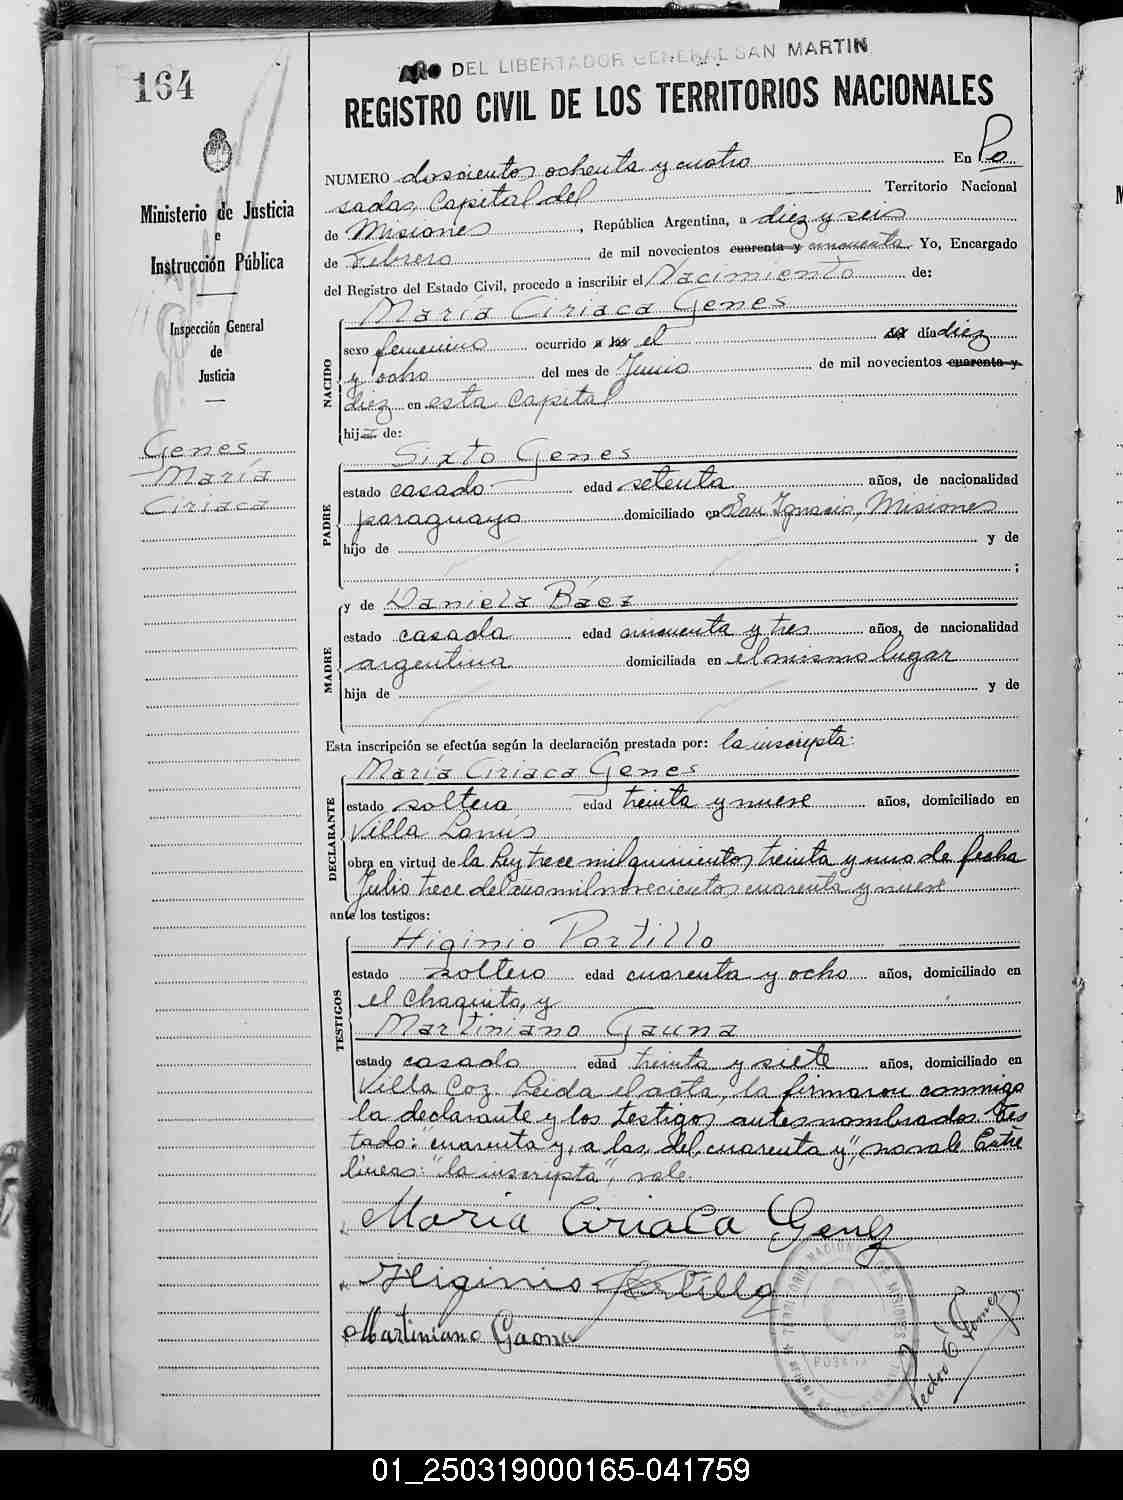 164
AÑO DEL LIBERTADOR GENERAL SAN MARTIN
REGISTRO CIVIL DE LOS TERRITORIOS NACIONALES
Ministerio de Justicia
e
Instrucción Pública
Inspección General
de
Justicia
Genes
María
Ciriaca
NUMERO doscientos ochenta y cuatro En Po
sadas, Capital del Territorio Nacional
de Misiones, República Argentina, a diez y seis
de Febrero de mil novecientos cuarenta y cincuenta Yo, Encargado
del Registro del Estado Civil, procedo a inscribir el Nacimiento de:
NACIDO
María Ciriaca Genes
sexo femenino ocurrido a las el del día diez
y ocho del mes de Junio de mil novecientos cuarenta y
diez en esta Capital
hija de:
PADRE
Sixto Genes
estado casado edad setenta años, de nacionalidad
paraguaya domiciliado en San Ignacio, Misiones
hijo de y de
;
MADRE
y de Daniela Báez
estado casada edad cincuenta y tres años, de nacionalidad
argentina domiciliada en el mismo lugar
hija de y de
Esta inscripción se efectúa según la declaración prestada por: la inscripta:
DECLARANTE
María Ciriaca Genes
estado soltera edad treinta y nueve años, domiciliado en
Villa Lanús
obra en virtud de la Ley trece mil quinientos treinta y uno de fecha
Julio trece del año mil novecientos cuarenta y nueve
ante los testigos:
TESTIGOS
Higinio Portillo
estado soltero edad cuarenta y ocho años, domiciliado en
el Chaquito, y
Martiniano Gauna
estado casado edad treinta y siete años, domiciliado en
Villa Coz. Leida el acta, la firmaron conmigo
la declarante y los testigos antes nombrados. Tes
tado: "cuarenta y, a las, del, cuarenta y", no vale. Entre
lineas: "la inscripta", vale.
María Ciriaca Genez
Higinio Portillo
Martiniano Gaona
POSADAS
Pedro E. Gomez
01_250319000165-041759